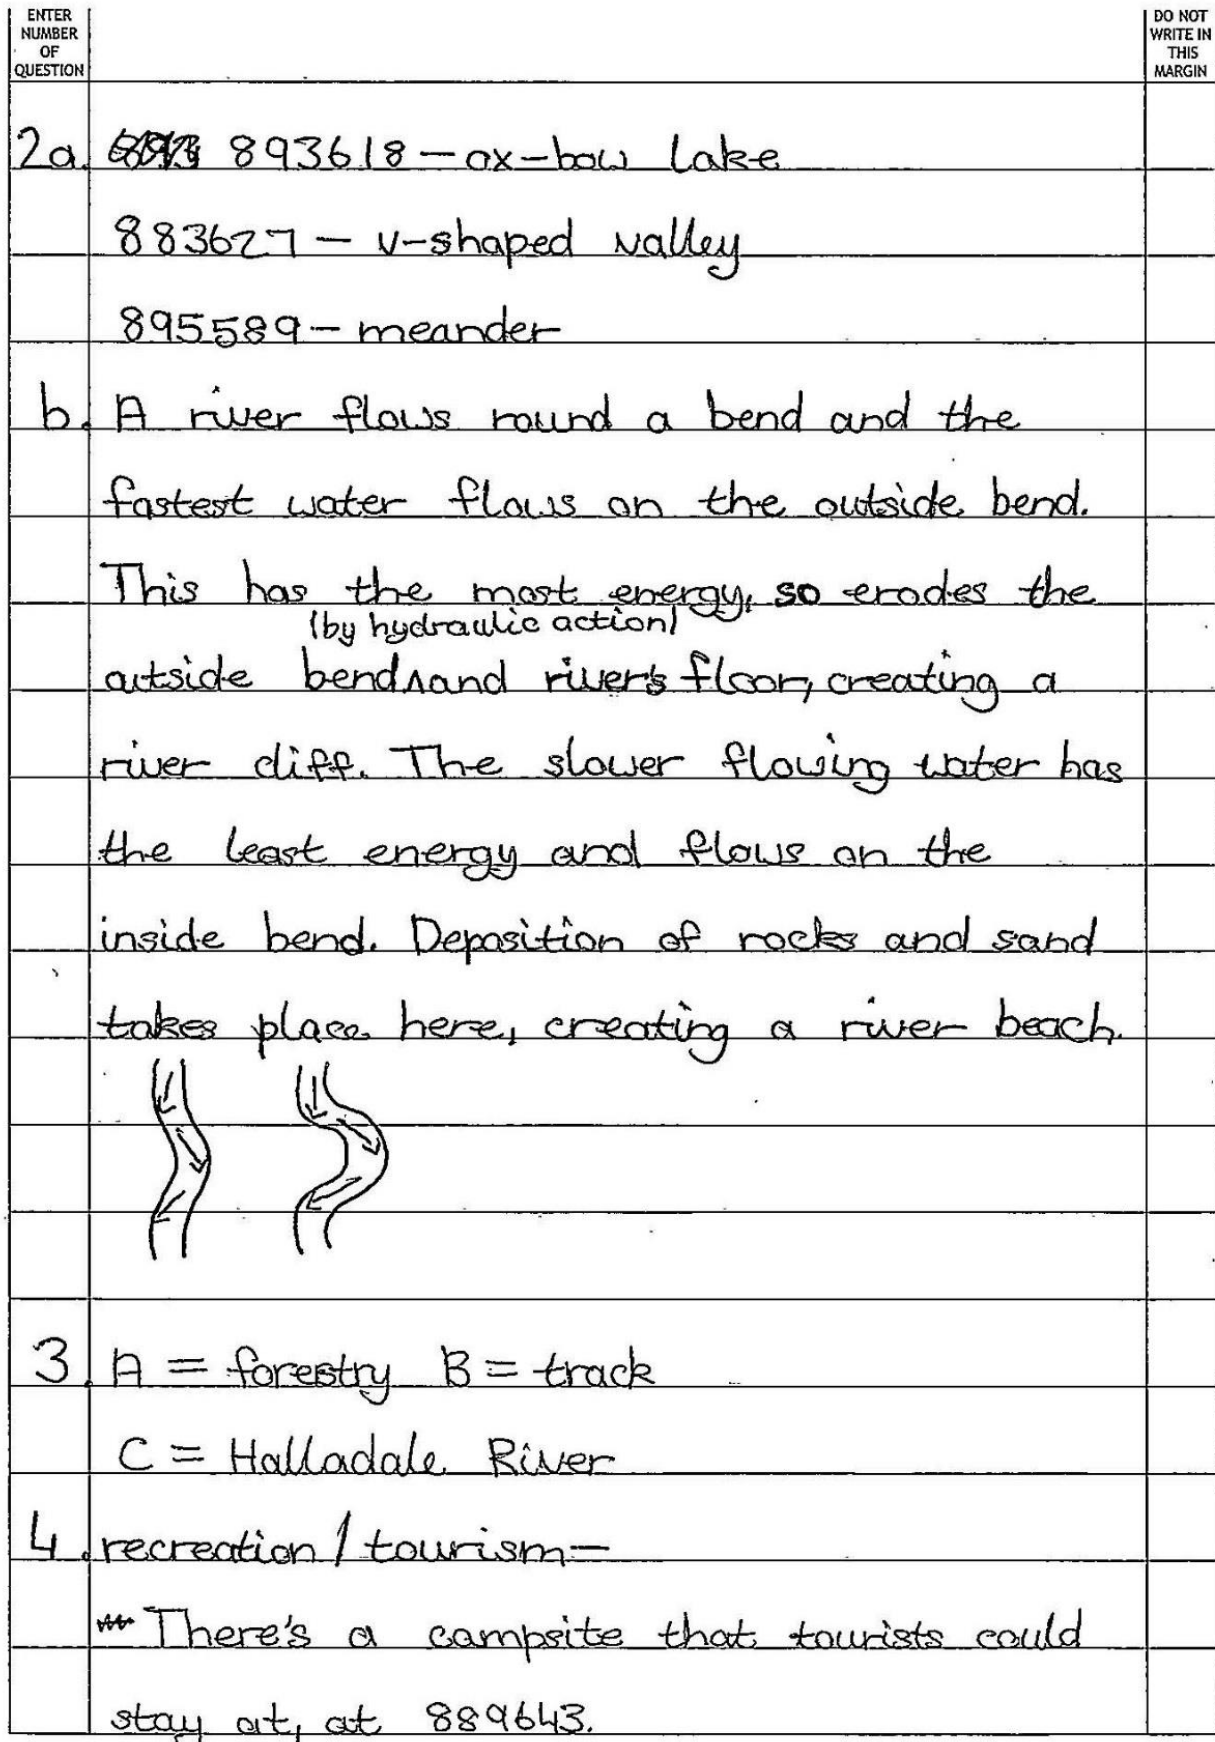 ENTER
NUMBER
OF
QUESTION
DO NOT
WRITE IN
THIS
MARGIN
2a. 893618 – ox-bow lake
883627 – v-shaped valley
895589 – meander
b. A river flows round a bend and the
fastest water flows on the outside bend.
This has the most energy, so erodes the
(by hydraulic action)
outside bend ∧ and river's floor, creating a
river cliff. The slower flowing water has
the least energy and flows on the
inside bend. Deposition of rocks and sand
takes place here, creating a river beach.
3. A = forestry B = track
C = Halladale River
4. recreation / tourism –
There's a campsite that tourists could
stay at, at 889643.